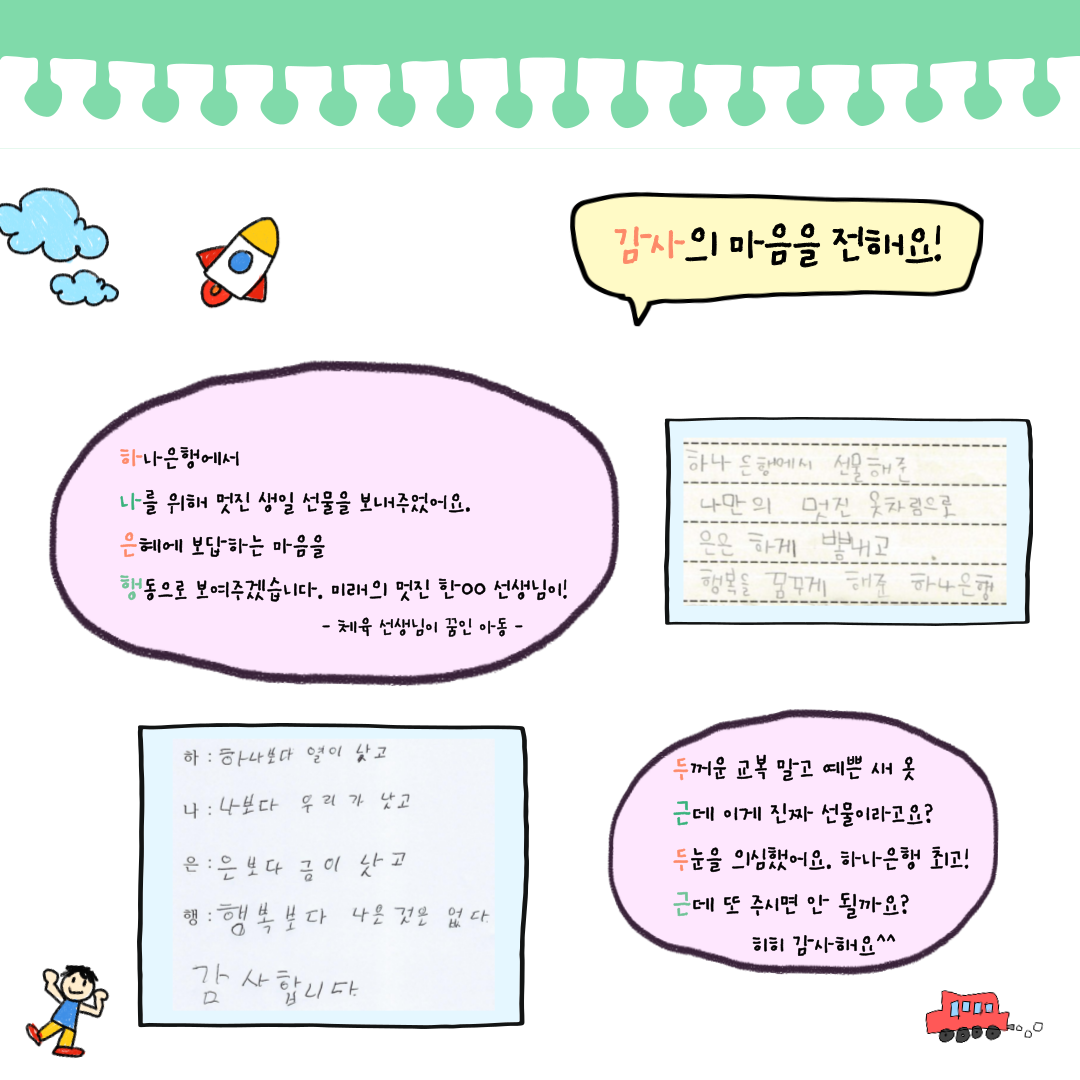 감사의 마음을 전해요!
하나은행에서
나를 위해 멋진 생일 선물을 보내주었어요.
은혜에 보답하는 마음을
행동으로 보여주겠습니다. 미래의 멋진 한OO 선생님이!
- 체육 선생님이 꿈인 아동 -
하나 은행에서 선물해준
나만의 멋진 옷차림으로
은은 하게 뽐내고
행복을 꿈꾸게 해준 하나은행
하 : 하나보다 열이 낫고
나 : 나보다 우리가 낫고
은 : 은보다 금이 낫고
행 : 행복보다 나은 것은 없다.
감사합니다.
두꺼운 교복 말고 예쁜 새 옷
근데 이게 진짜 선물이라고요?
두눈을 의심했어요. 하나은행 최고!
근데 또 주시면 안 될까요?
히히 감사해요^^